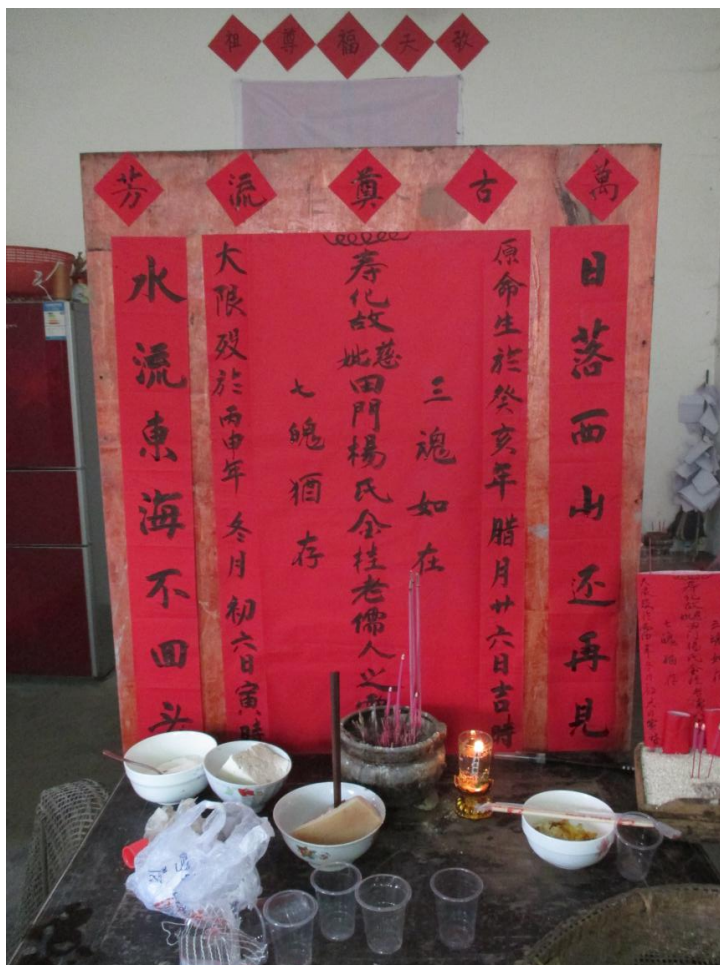 敬天福尊祖
萬古奠流芳
日落西山还再見
原命生於癸亥年腊月廿六日吉時
三魂如在
寿化故慈妣田門楊氏金桂老儒人之
七魄猶存
大限殁於丙申年冬月初六日寅時
水流東海不回头